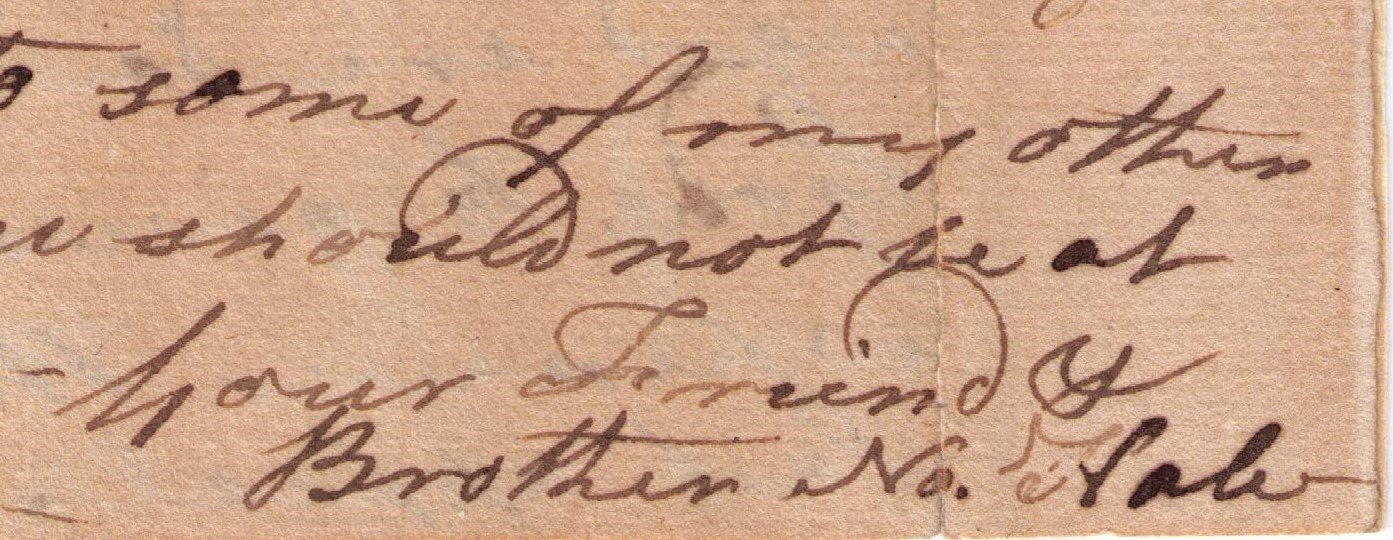 to some of my other
should not be at
- Your Friend &
Brother No. Hale